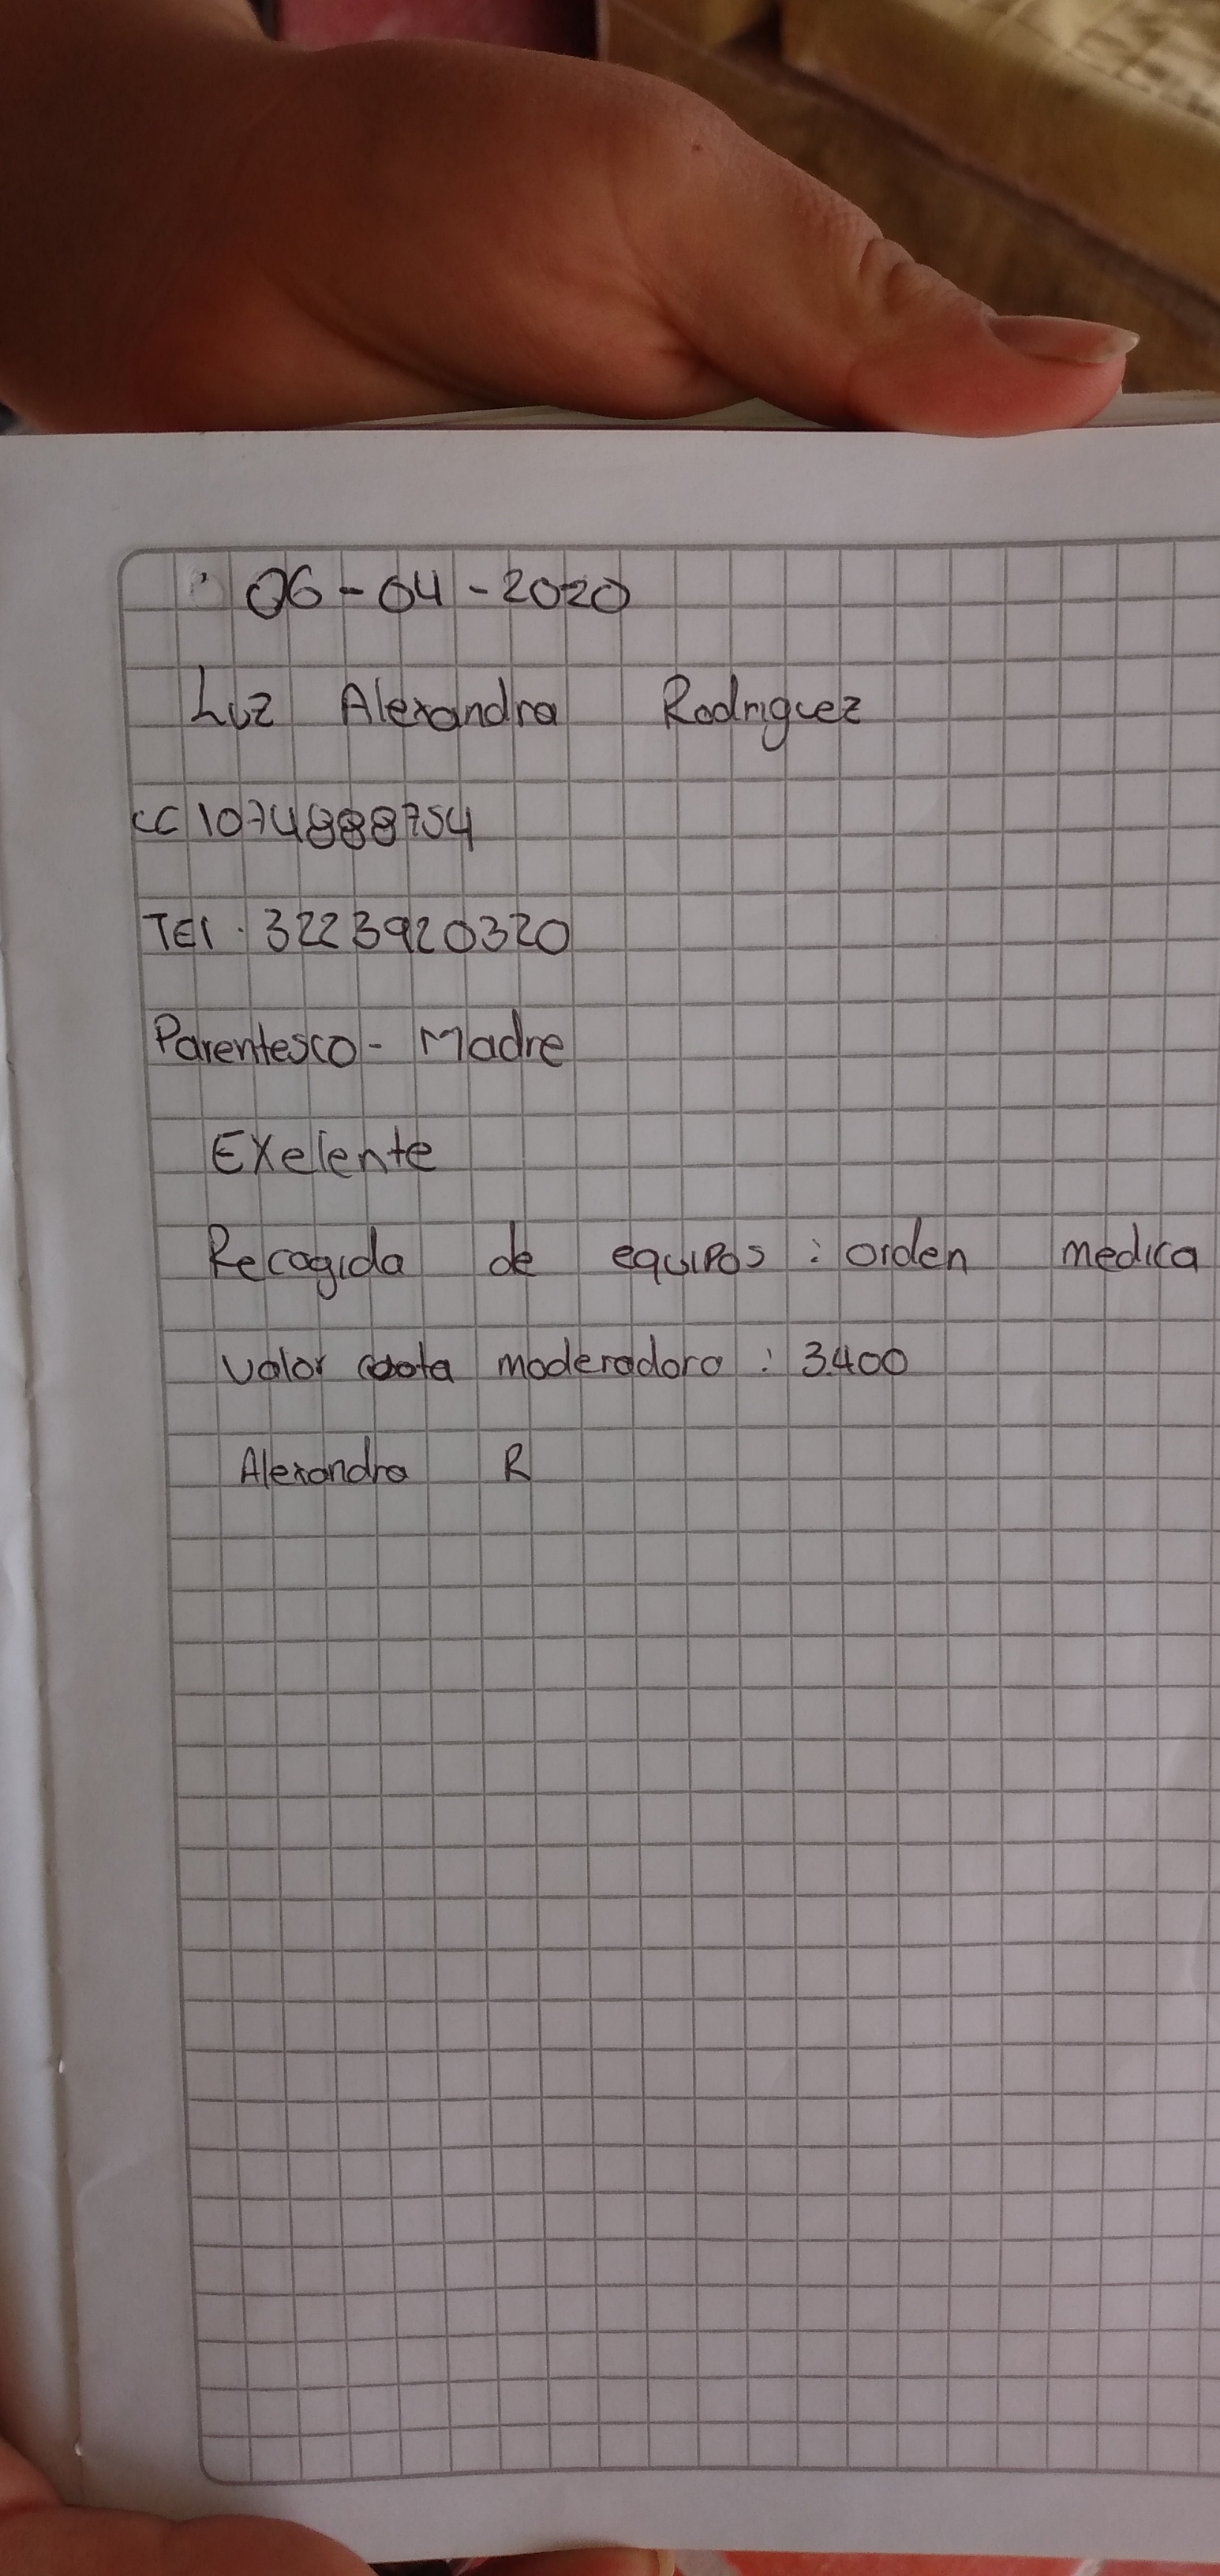 06-04-2020
Luz Alexandra Rodriguez
CC 1074888754
TEl. 3223920320
Parentesco - Madre
EXelente
Recogida de equipos : orden medica
valor coota moderadora : 3.400
Alexandra R